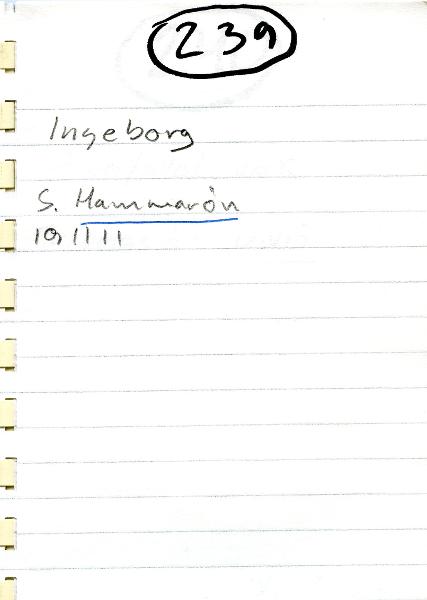 239
Ingeborg
S. Hammarön
191111